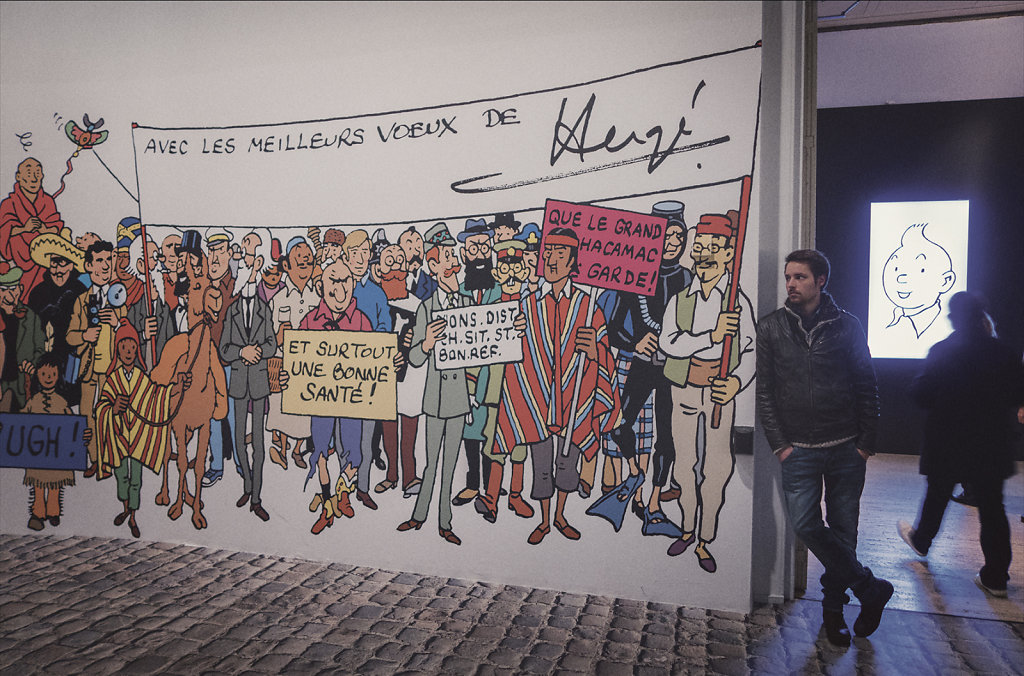 AVEC LES MEILLEURS VŒUX DE Hergé
QUE LE GRAND
HACAMAC
GARDE!
ET SURTOUT
UNE BONNE
SANTÉ!
CONS. DIST
CH. SIT. ST.
BON. REF.
UGH!